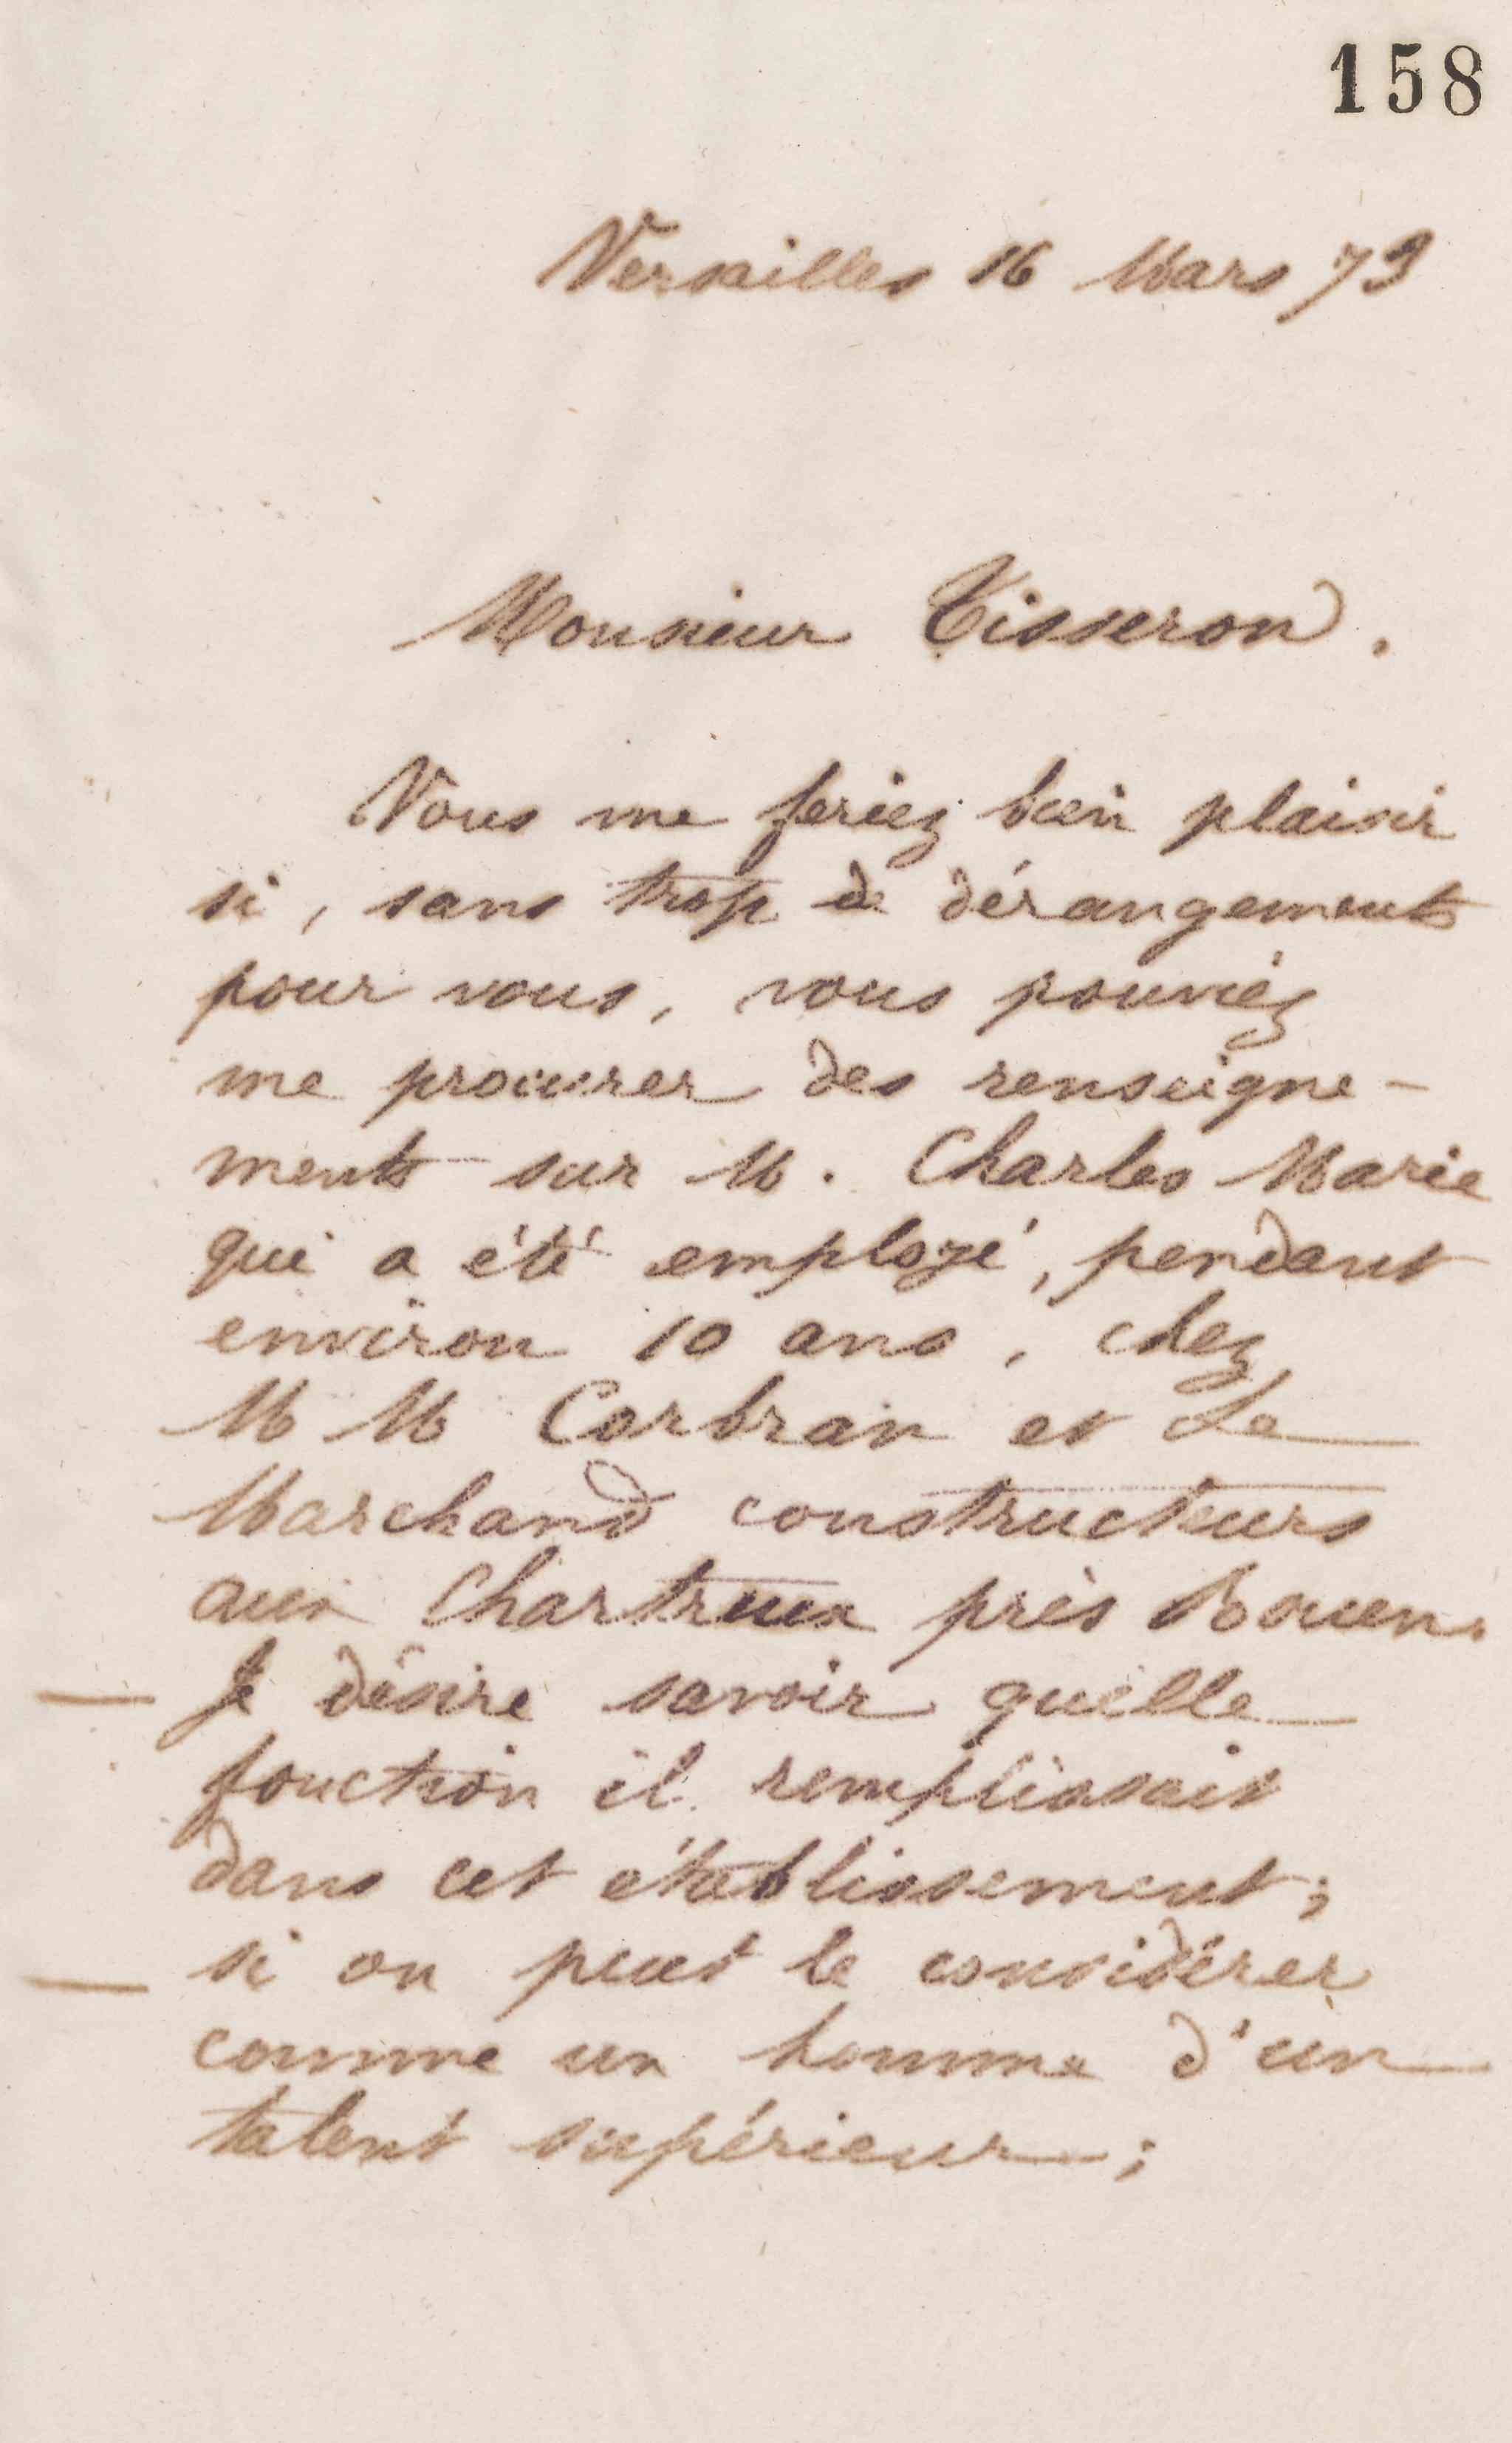 158
Versailles 16 Mars 79
Monsieur Tisseron.
Vous me feriez bien plaisir
si, sans trop de dérangement
pour vous, vous pouviez
me procurer des renseigne-
ments sur M. Charles Marie
qui a été employé, pendant
environ 10 ans, chez
M M Corbran et Le
Marchand constructeurs
aux Chartreux près Rouen.
— Je désire savoir quelle
fonction il remplissait
dans cet établissement;
— si on peut le considérer
comme un homme d'un
talent supérieur;